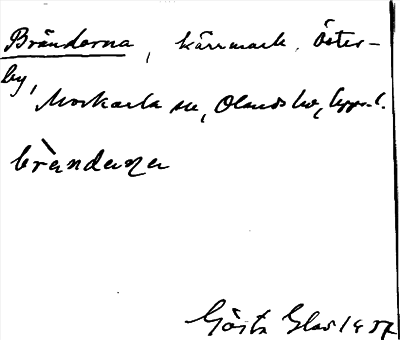 Bränderna, kärrmark, Öster-
by,
Morkarla sn, Olands hd, Uppl.
brändeɳa
Gösta Glas 1937